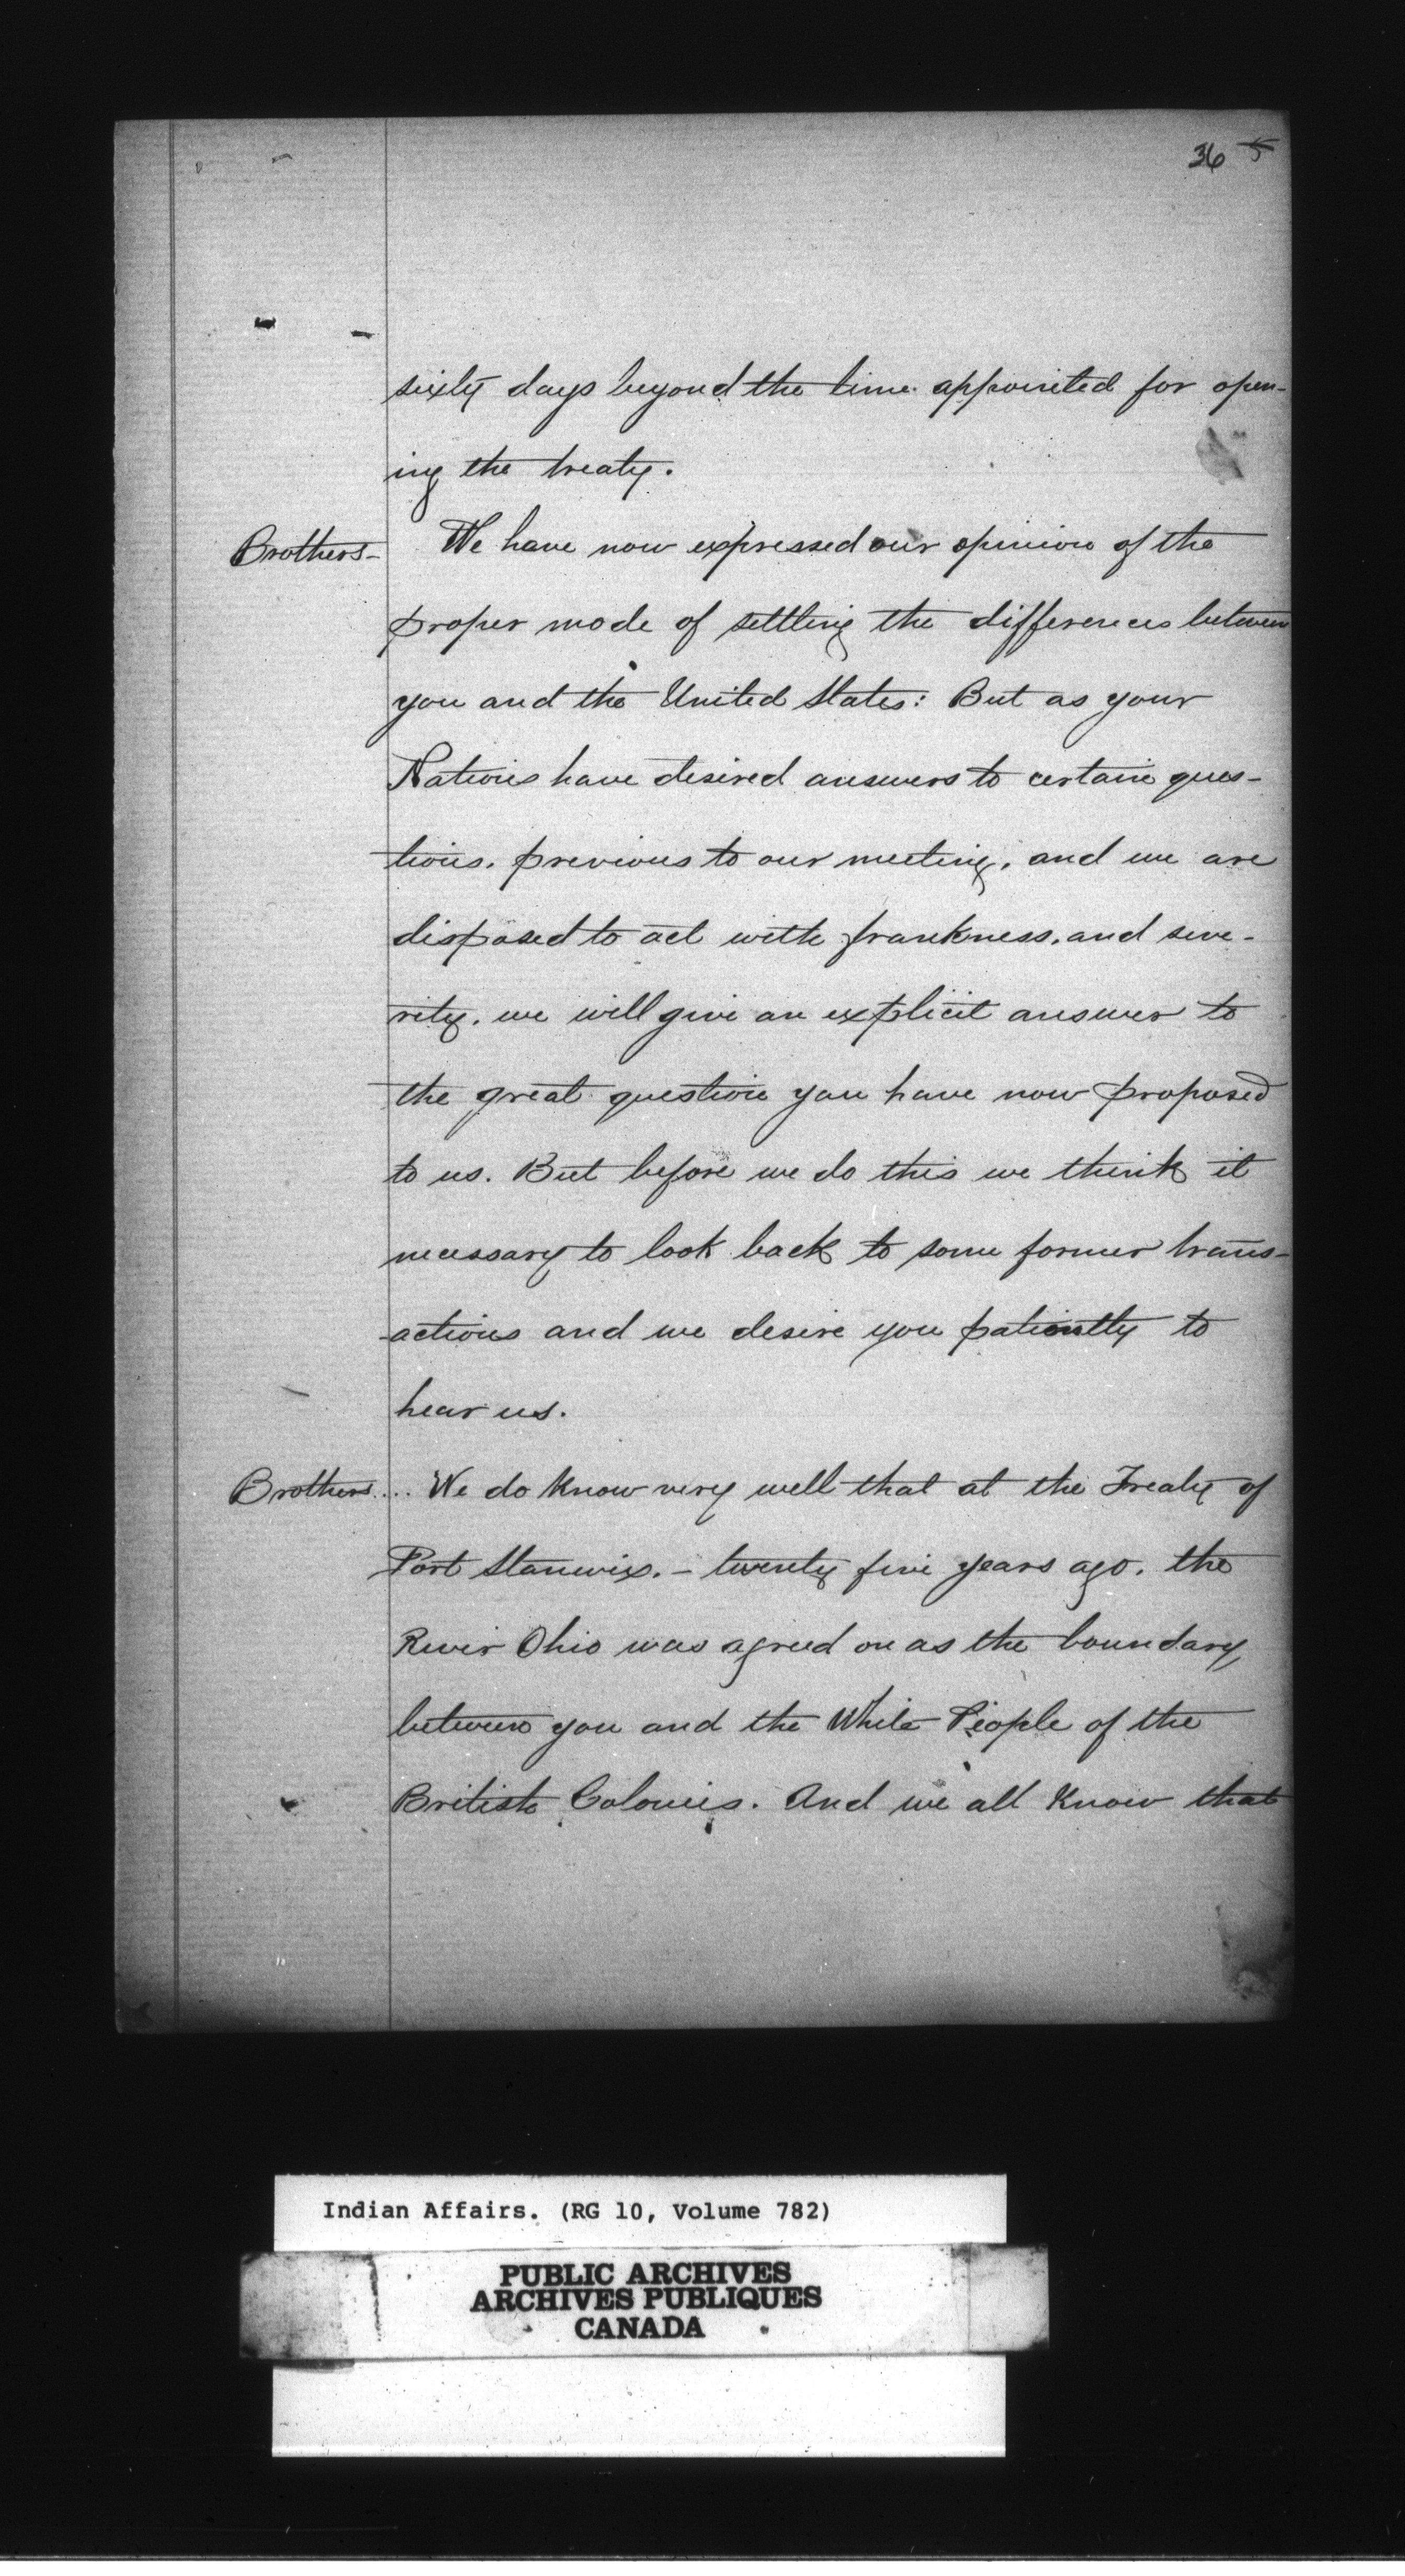 365
sixty days beyond the time appointed for open-
ing the treaty.
Brothers- We have now expressed our opinion of the
proper mode of settling the differences between
you and the United States: But as your
Nations have desired answers to certain ques-
tions, previous to our meeting, and we are
disposed to act with frankness, and since-
rity, we will give an explicit answer to
the great question you have now proposed
to us. But before we do this we think it
necessary to look back to some former trans-
-actions and we desire you patiently to
hear us.
Brothers... We do know very well that at the Treaty of
Fort Stanwix. - twenty five years ago. the
River Ohio was agreed on as the boundary
between you and the White People of the
British Colonies. And we all Know that
Indian Affairs. (RG 10, Volume 782)
PUBLIC ARCHIVES
ARCHIVES PUBLIQUES
CANADA